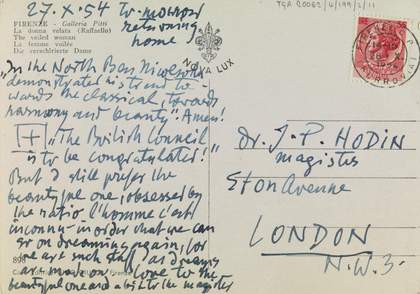 TGA 20062/4/199/2/11
27.X.54 to-morrow
returning
home
FIRENZE - Galleria Pitti
La donna velata (Raffaello)
The veiled woman
La femme voilée
Die verschleierte Dame
NOVA LUX
"In the North Ben Nicolson
demonstrated his trend to-
wards the classical, towards
harmony and beauty". Amen!
+ "The British Council
is to be congratulated!"
But I still prefer the
beautyful one, obsessed by
the ratio. l'homme c'est
inconnu - in order that we can
go on dreaming again, for
we are such stuff as dreams
are made on. Love to the
beautyful one and a bit to the magister
Dr. J. P. HODIN
magister
Eton Avenue
LONDON
N.W. 3.